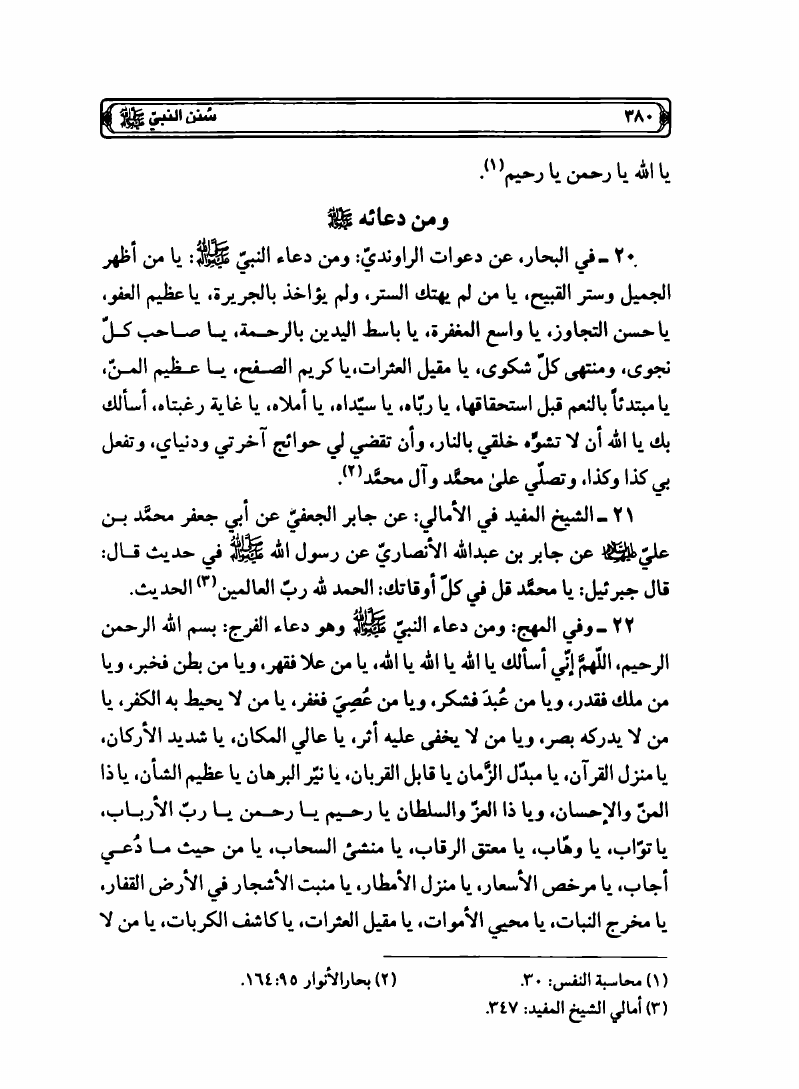 ٣٨٠
سُنن النبيّ ﷺ
يا الله يا رحمن يا رحيم(١).
ومن دعائه ﷺ
٢٠ ـ في البحار، عن دعوات الراونديّ: ومن دعاء النبيّ ﷺ: يا من أظهر
الجميل وستر القبيح، يا من لم يهتك الستر، ولم يؤاخذ بالجريرة، يا عظيم العفو،
يا حسن التجاوز، يا واسع المغفرة، يا باسط اليدين بالرحمة، يا صاحب كلّ
نجوى، ومنتهى كلّ شكوى، يا مقيل العثرات، يا كريم الصفح، يا عظيم المنّ،
يا مبتدئاً بالنعم قبل استحقاقها، يا ربّاه، يا سيّداه، يا أملاه، يا غاية رغبتاه، أسألك
بك يا الله أن لا تشوّه خلقي بالنار، وأن تقضي لي حوائج آخرتي ودنياي، وتفعل
بي كذا وكذا، وتصلّي علىٰ محمَّد وآل محمَّد(٢).
٢١ ـ الشيخ المفيد في الأمالي: عن جابر الجعفيّ عن أبي جعفر محمَّد بن
عليّ عليه السلام عن جابر بن عبدالله الأنصاريّ عن رسول الله ﷺ في حديث قال:
قال جبرئيل: يا محمَّد قل في كلّ أوقاتك: الحمد لله ربّ العالمين(٣) الحديث.
٢٢ ـ وفي المهج: ومن دعاء النبيّ ﷺ وهو دعاء الفرج: بسم الله الرحمن
الرحيم، اللّهمَّ إنّي أسألك يا الله يا الله يا الله، يا من علا فقهر، ويا من بطن فخبر، ويا
من ملك فقدر، ويا من عُبدَ فشكر، ويا من عُصِيَ فغفر، يا من لا يحيط به الكفر، يا
من لا يدركه بصر، ويا من لا يخفى عليه أثر، يا عالي المكان، يا شديد الأركان،
يا منزل القرآن، يا مبدّل الزَّمان يا قابل القربان، يا نيّر البرهان يا عظيم الشأن، يا ذا
المنّ والإحسان، ويا ذا العزّ والسلطان يا رحيم يا رحمن يا ربّ الأرباب،
يا توّاب، يا وهّاب، يا معتق الرقاب، يا منشئ السحاب، يا من حيث ما دُعي
أجاب، يا مرخص الأسعار، يا منزل الأمطار، يا منبت الأشجار في الأرض القفار،
يا مخرج النبات، يا محيي الأموات، يا مقيل العثرات، يا كاشف الكربات، يا من لا
(١) محاسبة النفس: ٣٠. (٢) بحارالأنوار ٩٥: ١٦٤.
(٣) أمالي الشيخ المفيد: ٣٤٧.